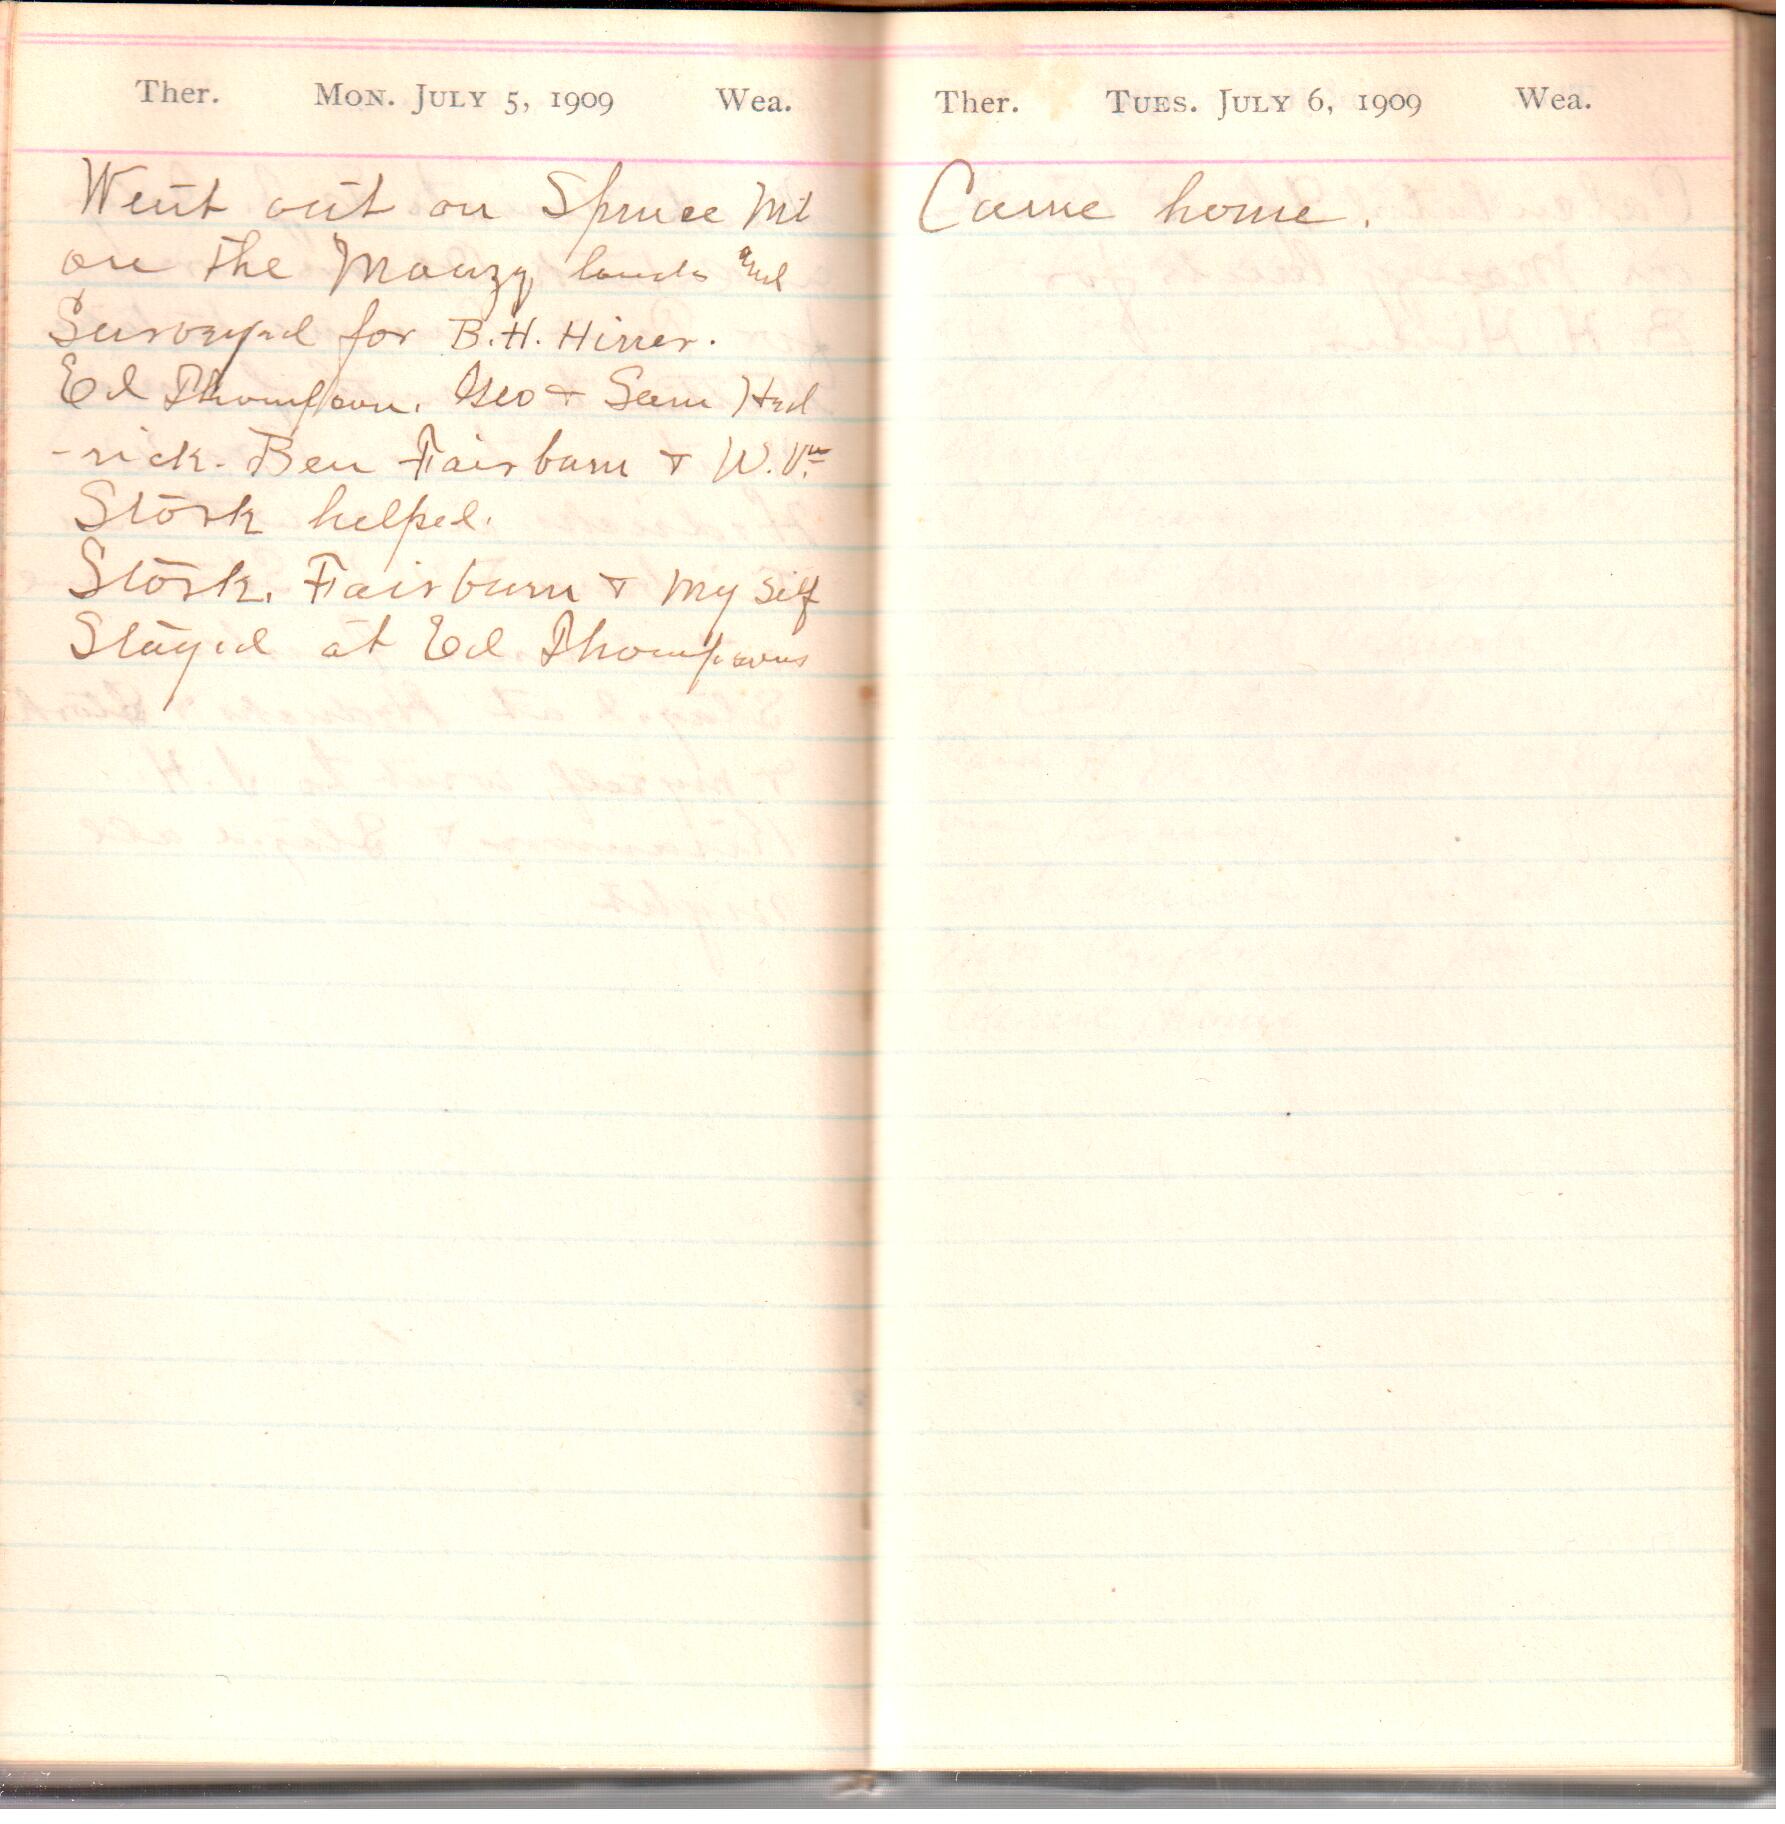 Ther. Mon. July 5, 1909 Wea.
Went out on Spruce Mt
on the Mauzy lands and
Surveyed for B.H. Hiner.
Ed Thompson. Geo + Sam Hed
-rick. Ben Fairburn + W. Vᵐ
Stork helped.
Stork. Fairburn + my self
Stayed at Ed Thompsons
Ther. Tues. July 6, 1909 Wea.
Came home.